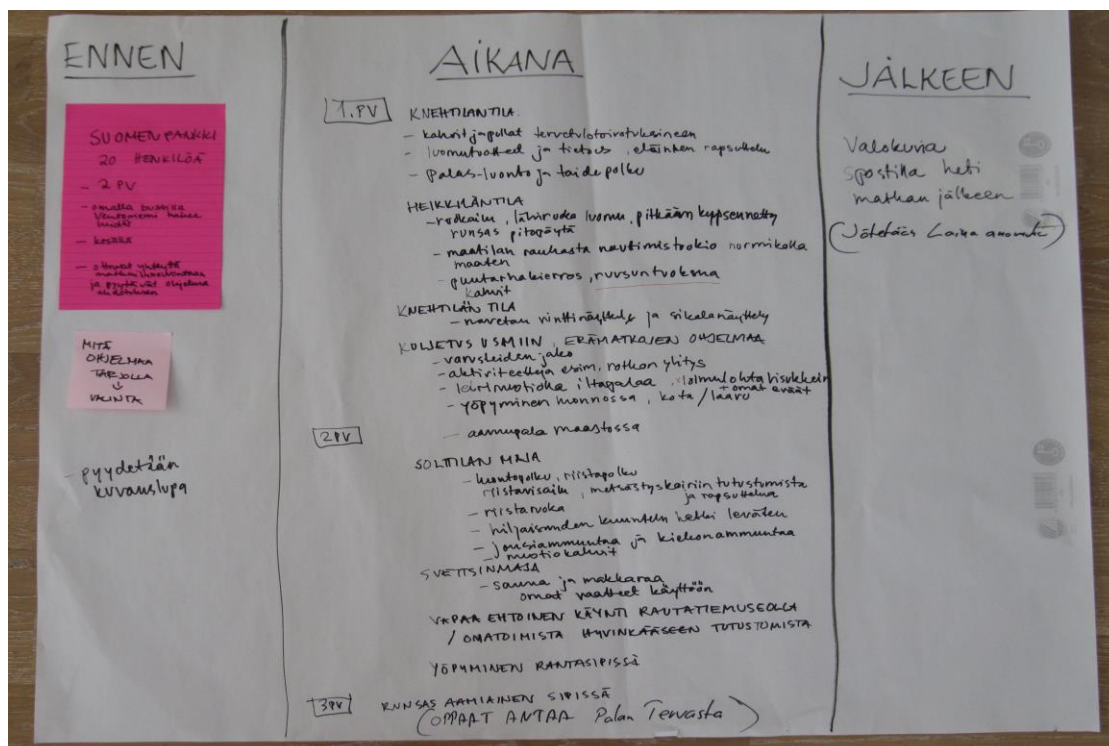 ENNEN
SUOMEN PANKKI
20 HENKILÖÄ
- 2 PV
- omalla bussilla
Ventoniemi hakee
heidät
- kesällä
- ottavat yhteyttä
ja pyytävät ohjelma
ehdotuksen
MITÄ
OHJELMAA
TARJOLLA
↓
VALINTA
- pyydetään
kuvauslupa
AIKANA
1.PV
KNEHTILANTILA.
- kahvit ja pullat tervetulotoivotuksineen
- luomutuotteet ja tietous, eläinten rapsuttelu
- Palas-luonto ja taidepolku
HEIKKILÄNTILA
- ruokailu, lähiruoka luomu, pitkään kypsennetty
runsas pitopöytä
- maatilan rauhasta nautimistuokio nurmikolla
maaten
- puutarhakierros, ruusuntuoksua
kahvit
KNEHTILÄN TILA
- navetan vinttinäyttely ja sikalanäyttely
KULJETUS USMIIN, ERÄMATKOJEN OHJELMAA
- varusteiden jako
- aktiviteetteja esim. rotkon ylitys
- leirinuotiolla iltapalaa, loimulohta lisukkein
+ omat eväät
- yöpyminen luonnossa, kota/laavu
2PV
- aamupala maastossa
SOLTTILAN MAJA
- luontopolku, riistapolku
riistavisailu, metsästyskoiriin tutustumista
ja rapsuttelua
- riistaruoka
- hiljaisuuden kuuntelu hetki leväten
- jousiammuntaa ja kiekonammuntaa
- nuotiokahvit
SVEITSINMAJA
- sauna ja makkaraa
omat vaatteet käyttöön
VAPAA EHTOINEN KÄYNTI RAUTATIEMUSEOLLA
/ OMATOIMISTA HYVINKÄÄSEEN TUTUSTUMISTA
YÖPYMINEN RANTASIPISSÄ
3PV
RUNSAS AAMIAINEN SIPISSÄ
(OPPAAT ANTAA Palan Tervasta)
JÄLKEEN
Valokuvia
spostilla heti
matkan jälkeen